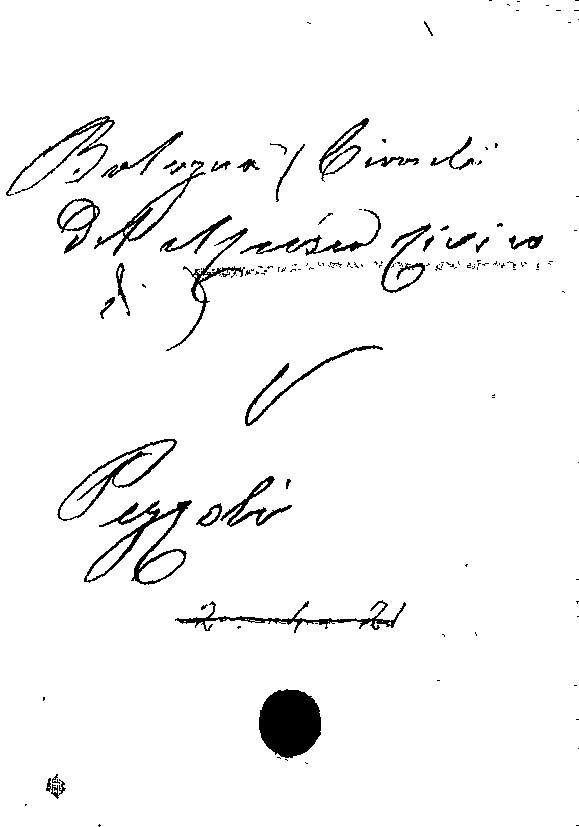 Bologna / Circolo
Del Museo Civico
di
V
Pezzoli
2. 4. 21